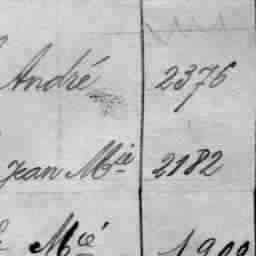 André 2376
Jean Mie 2182
Mié 1900